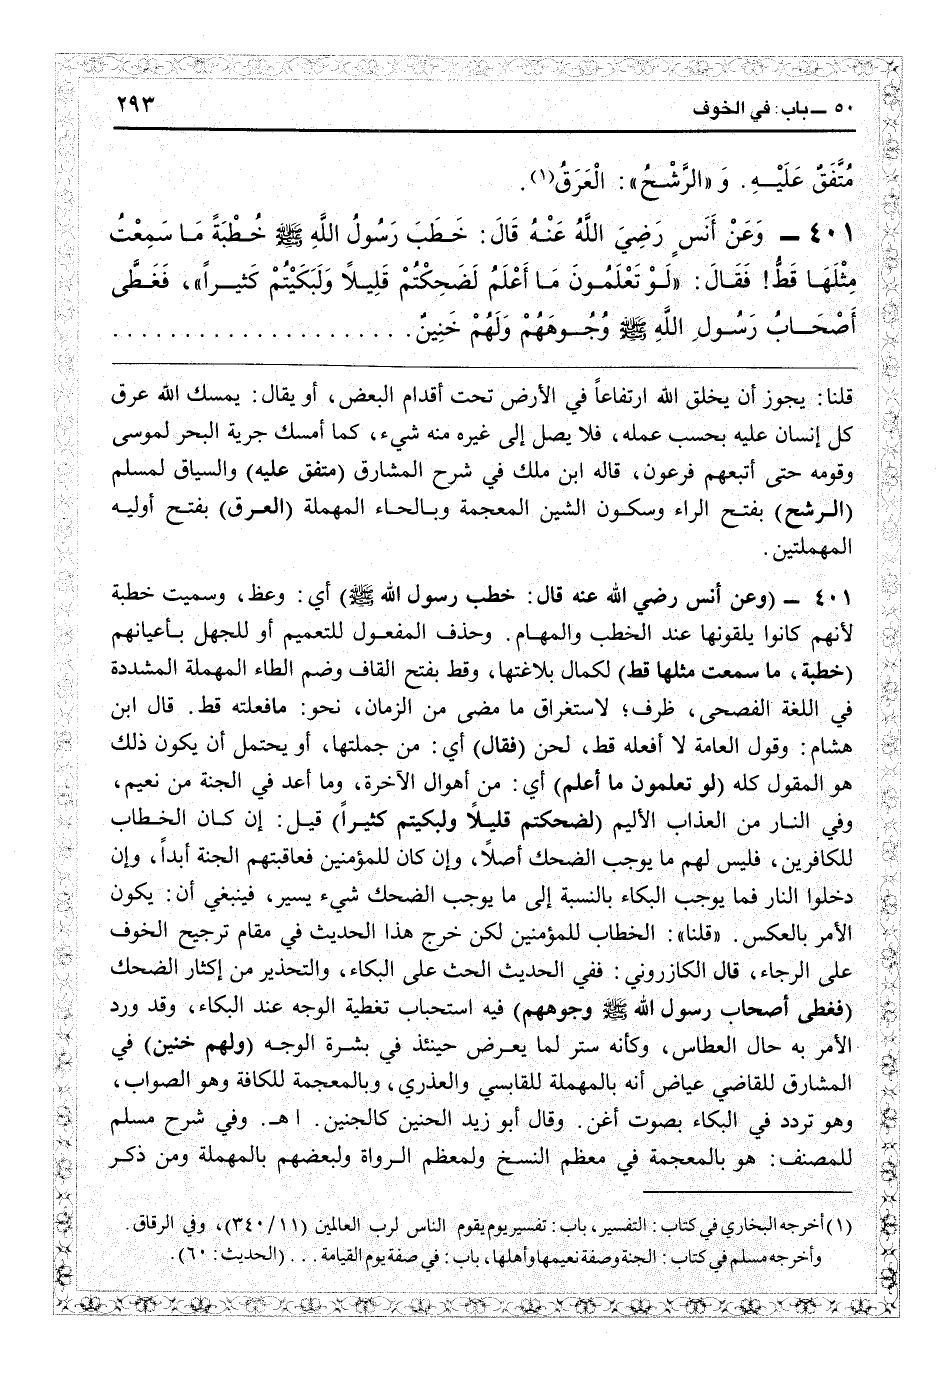 ٥٠ ــ باب: في الخوف ٢٩٣
مُتَّفَقٌ عَلَيْهِ. وَ «الرَّشْحُ»: الْعَرَقُ(١).
٤٠١ ــ وَعَنْ أَنَسٍ رَضِيَ اللَّهُ عَنْهُ قَالَ: خَطَبَ رَسُولُ اللَّهِ ﷺ خُطْبَةً مَا سَمِعْتُ
مِثْلَهَا قَطُّ! فَقَالَ: «لَوْ تَعْلَمُونَ مَا أَعْلَمُ لَضَحِكْتُمْ قَلِيلاً وَلَبَكَيْتُمْ كَثِيراً»، فَغَطَّى
أَصْحَابُ رَسُولِ اللَّهِ ﷺ وُجُوهَهُمْ وَلَهُمْ خَنِينٌ. . . . . . . . . . . . . . . . . . . . .
قلنا: يجوز أن يخلق الله ارتفاعاً في الأرض تحت أقدام البعض، أو يقال: يمسك الله عرق
كل إنسان عليه بحسب عمله، فلا يصل إلى غيره منه شيء، كما أمسك جرية البحر لموسى
وقومه حتى أتبعهم فرعون، قاله ابن ملك في شرح المشارق (متفق عليه) والسياق لمسلم
(الرشح) بفتح الراء وسكون الشين المعجمة وبالحاء المهملة (العرق) بفتح أوليه
المهملتين.
٤٠١ ــ (وعن أنس رضي الله عنه قال: خطب رسول الله ﷺ) أي: وعظ، وسميت خطبة
لأنهم كانوا يلقونها عند الخطب والمهام. وحذف المفعول للتعميم أو للجهل بأعيانهم
(خطبة، ما سمعت مثلها قط) لكمال بلاغتها، وقط بفتح القاف وضم الطاء المهملة المشددة
في اللغة الفصحى، ظرف؛ لاستغراق ما مضى من الزمان، نحو: مافعلته قط. قال ابن
هشام: وقول العامة لا أفعله قط، لحن (فقال) أي: من جملتها، أو يحتمل أن يكون ذلك
هو المقول كله (لو تعلمون ما أعلم) أي: من أهوال الآخرة، وما أعد في الجنة من نعيم،
وفي النار من العذاب الأليم (لضحكتم قليلاً ولبكيتم كثيراً) قيل: إن كان الخطاب
للكافرين، فليس لهم ما يوجب الضحك أصلاً، وإن كان للمؤمنين فعاقبتهم الجنة أبداً، وإن
دخلوا النار فما يوجب البكاء بالنسبة إلى ما يوجب الضحك شيء يسير، فينبغي أن: يكون
الأمر بالعكس. «قلنا»: الخطاب للمؤمنين لكن خرج هذا الحديث في مقام ترجيح الخوف
على الرجاء، قال الكازروني: ففي الحديث الحث على البكاء، والتحذير من إكثار الضحك
(فغطى أصحاب رسول الله ﷺ وجوههم) فيه استحباب تغطية الوجه عند البكاء، وقد ورد
الأمر به حال العطاس، وكأنه ستر لما يعرض حينئذ في بشرة الوجه (ولهم خنين) في
المشارق للقاضي عياض أنه بالمهملة للقابسي والعذري، وبالمعجمة للكافة وهو الصواب،
وهو تردد في البكاء بصوت أغن. وقال أبو زيد الحنين كالجنين. ا هـ. وفي شرح مسلم
للمصنف: هو بالمعجمة في معظم النسخ ولمعظم الرواة ولبعضهم بالمهملة ومن ذكر
(١) أخرجه البخاري في كتاب: التفسير، باب: تفسير يوم يقوم الناس لرب العالمين (١١/ ٣٤٠)، وفي الرقاق.
وأخرجه مسلم في كتاب: الجنة وصفة نعيمها وأهلها، باب: في صفة يوم القيامة . . . (الحديث: ٦٠).